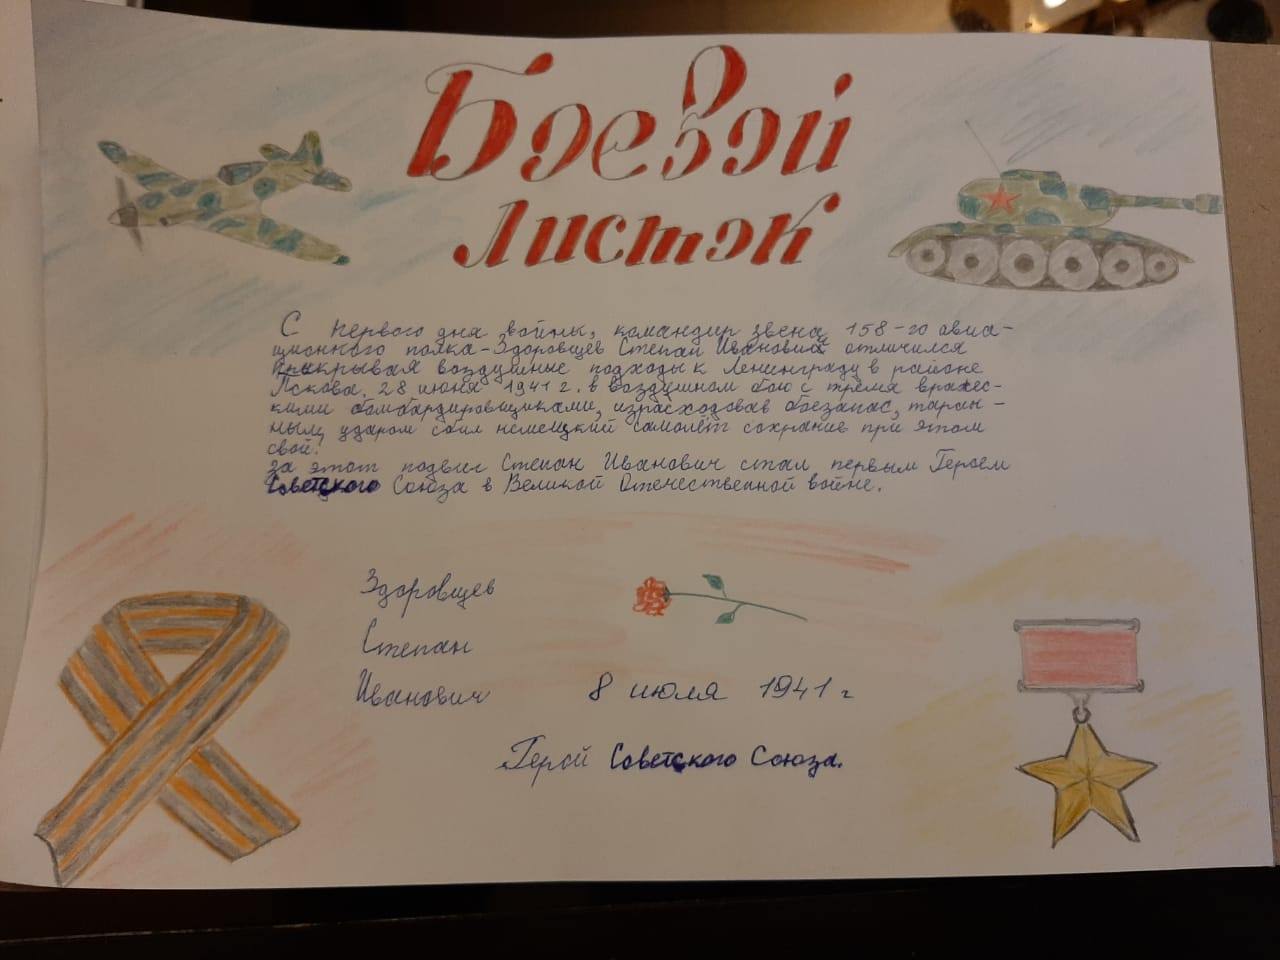 Боевой
листок
С первого дня войны, командир звена 158-го авиа-
ционного полка-Здоровцев Степан Иванович отличился
прикрывая воздушные подходы к Ленинграду в районе
Пскова. 28 июня 1941 г. в воздушном бою с тремя вражес-
кими бомбардировщиками, израсходовав боезапас, таран-
ным ударом сбил немецкий самолёт сохранив при этом
свой.
За этот подвиг Степан Иванович стал первым Героем
Советского Союза в Великой Отечественной войне.
Здоровцев
Степан
Иванович
8 июля 1941 г
Герой Советского Союза.